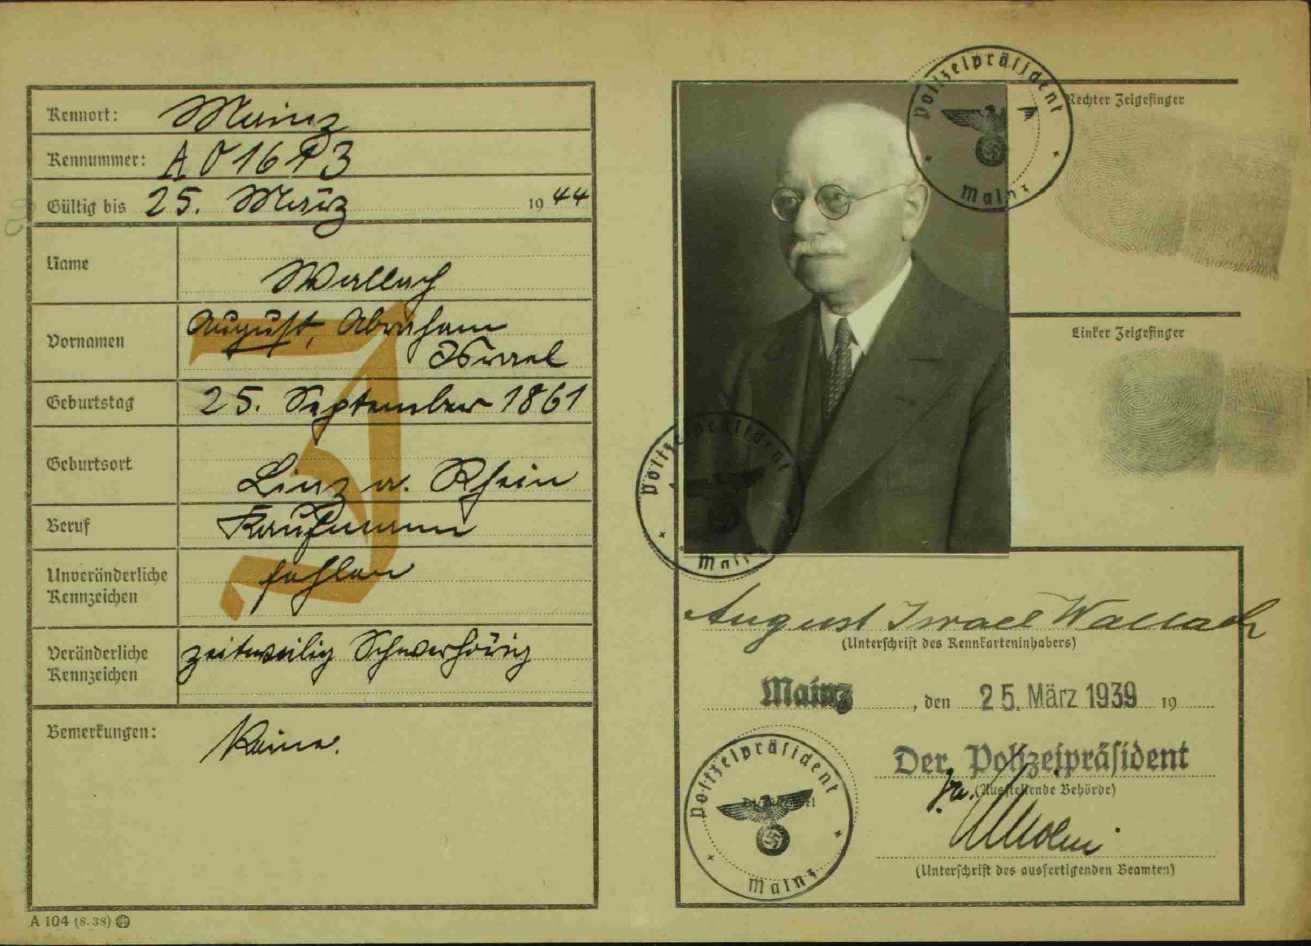 Kennort: Mainz
Kennummer: A 01613
Gültig bis 25. März 1944
Name Wallach
Vornamen August, Abraham
Israel
Geburtstag 25. September 1861
Geburtsort Linz a. Rhein
Beruf Kaufmann
Unveränderliche
Kennzeichen fehlen
Veränderliche
Kennzeichen zeitweilig Schwerhörig
Bemerkungen: Keine.
A 104 (8. 38)
J
Polizeipräsident
Mainz
Rechter Zeigefinger
Linker Zeigefinger
Polizeipräsident
Mainz
August Israel Wallach
(Unterschrift des Kennkarteninhabers)
Mainz, den 25. März 1939 19
Der Polizeipräsident
(Ausstellende Behörde)
Polizeipräsident
Mainz
(Unterschrift des ausfertigenden Beamten)